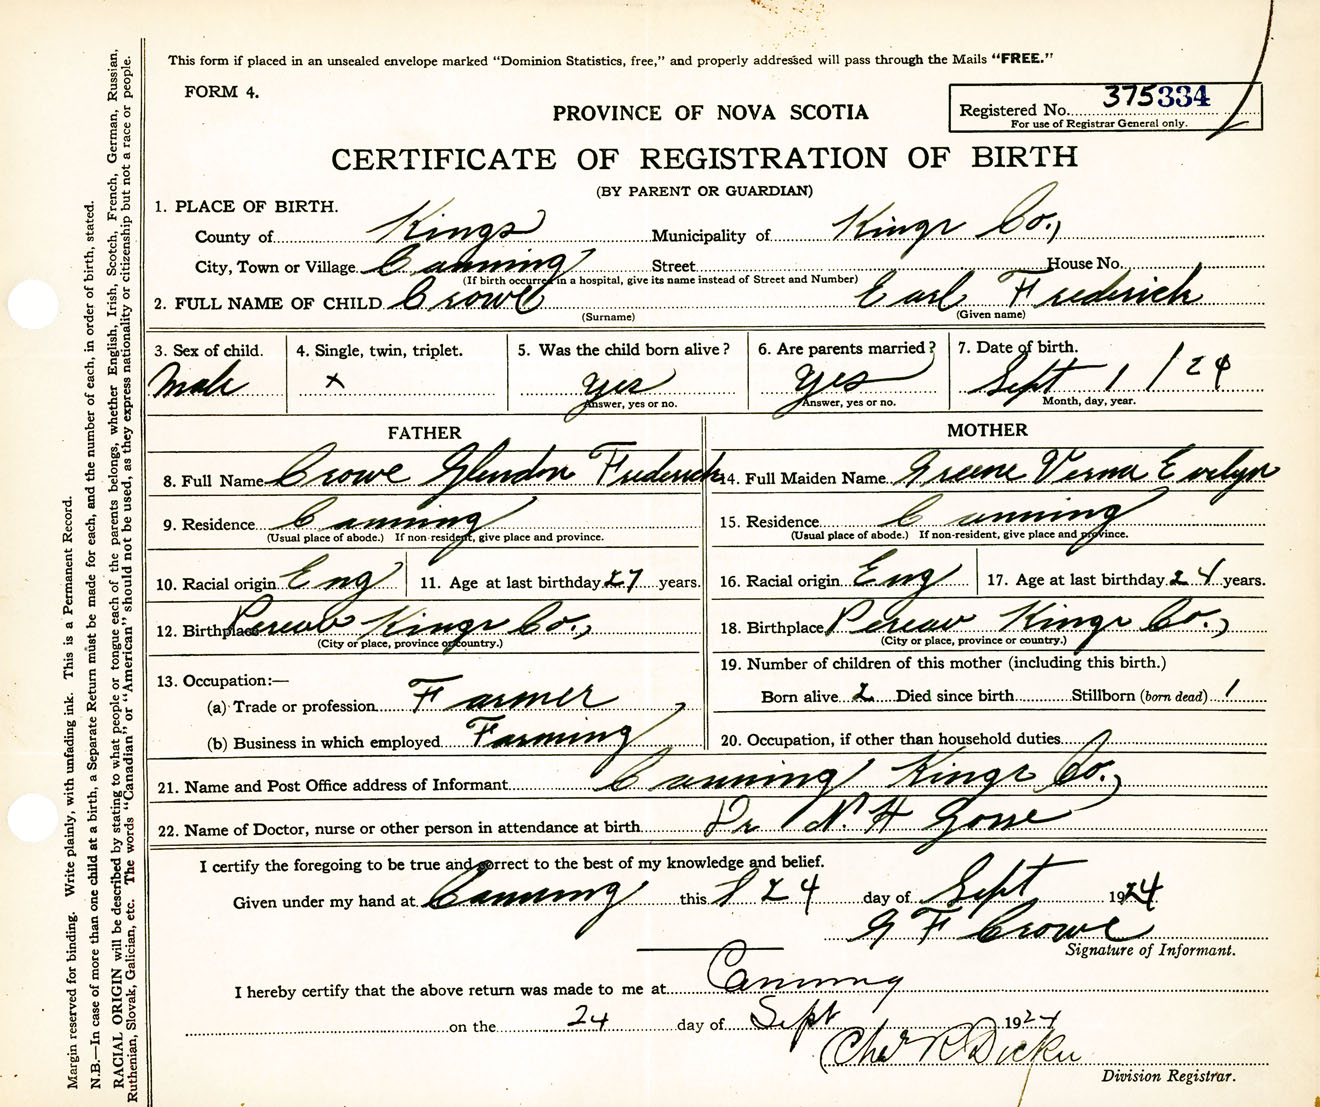 This form if placed in an unsealed envelope marked "Dominion Statistics, free," and properly addressed will pass through the Mails "FREE."
FORM 4.
PROVINCE OF NOVA SCOTIA
Registered No. 375334
For use of Registrar General only.
CERTIFICATE OF REGISTRATION OF BIRTH
(BY PARENT OR GUARDIAN)
1. PLACE OF BIRTH.
County of Kings Municipality of Kings Co.,
City, Town or Village Canning Street House No.
(If birth occurred in a hospital, give its name instead of Street and Number)
2. FULL NAME OF CHILD Crowe Earl Frederick
(Surname) (Given name)
3. Sex of child. 4. Single, twin, triplet. 5. Was the child born alive? 6. Are parents married? 7. Date of birth.
Male x yes Yes Sept 1 / 24
Answer, yes or no. Answer, yes or no. Month, day, year.
FATHER MOTHER
8. Full Name Crowe Glendon Frederick 14. Full Maiden Name Greene Verna Evelyn
9. Residence Canning 15. Residence Canning
(Usual place of abode.) If non-resident, give place and province. (Usual place of abode.) If non-resident, give place and province.
10. Racial origin Eng 11. Age at last birthday 27 years. 16. Racial origin Eng 17. Age at last birthday 24 years.
12. Birthplace Pereau Kings Co., 18. Birthplace Pereau Kings Co.,
(City or place, province or country.) (City or place, province or country.)
19. Number of children of this mother (including this birth.)
13. Occupation:—
(a) Trade or profession Farmer Born alive 2 Died since birth Stillborn (born dead) 1
(b) Business in which employed Farming 20. Occupation, if other than household duties
21. Name and Post Office address of Informant Canning Kings Co.,
22. Name of Doctor, nurse or other person in attendance at birth Dr N. H Gosse
I certify the foregoing to be true and correct to the best of my knowledge and belief.
Given under my hand at Canning this 24 day of Sept 1924
G F Crowe
Signature of Informant.
I hereby certify that the above return was made to me at Canning
on the 24 day of Sept 1924
Chas R Dickie
Division Registrar.
Margin reserved for binding. Write plainly, with unfading ink. This is a Permanent Record.
N.B.—In case of more than one child at a birth, a Separate Return must be made for each, and the number of each, in order of birth, stated.
RACIAL ORIGIN will be described by stating to what people or tongue each of the parents belongs, whether English, Irish, Scotch, French, German, Russian,
Ruthenian, Slovak, Galician, etc. The words "Canadian" or "American" should not be used, as they express nationality or citizenship but not a race or people.